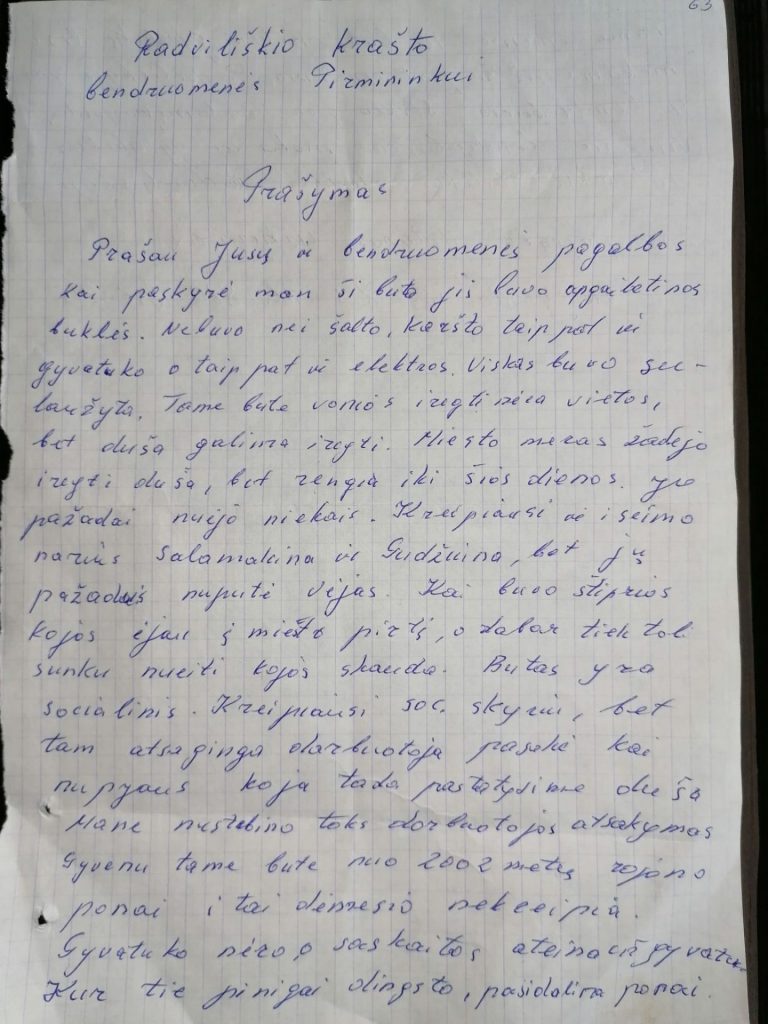 63
Radviliškio krašto
bendruomenės Pirmininkui
Prašymas
Prašau Jusų ir bendruomenės pagalbos
kai paskyrė man ši buta jis buvo apgailetinos
buklės. Nebuvo nei šalto, karšto taip pat ir
gyvatuko o taip pat ir elektros. Viskas buvo su-
laužyta. Tame bute vonios iregti nėra vietos,
bet duša galima iregti. Miesto meras žadėjo
iregti duša, bet rengia iki šios dienos. Jo
pažadai nuėjo niekais. Kreipiausi ir i seimo
narius Salamakina ir Gudžiuina, bet jų
pažadus nuputė vėjas. Kai buvo stiprios
kojos ėjau į miesto pirtį, o dabar tiek toli
sunku nueiti kojos skauda. Butas yra
socialinis. Kreipiausi soc. skyriu, bet
tam atsaginga darbuotoja pasakė kai
nupjaus koja tada pastatysime duša
Mane nustebino toks darbuotojos atsakymas
Gyvenu tame bute nuo 2002 metų rajono
ponai i tai dėmesio nekreipia.
Gyvatuko nėra, o saskaitos ateina už gyvatu-
Kur tie pinigai dingsta, pasidalina ponai.